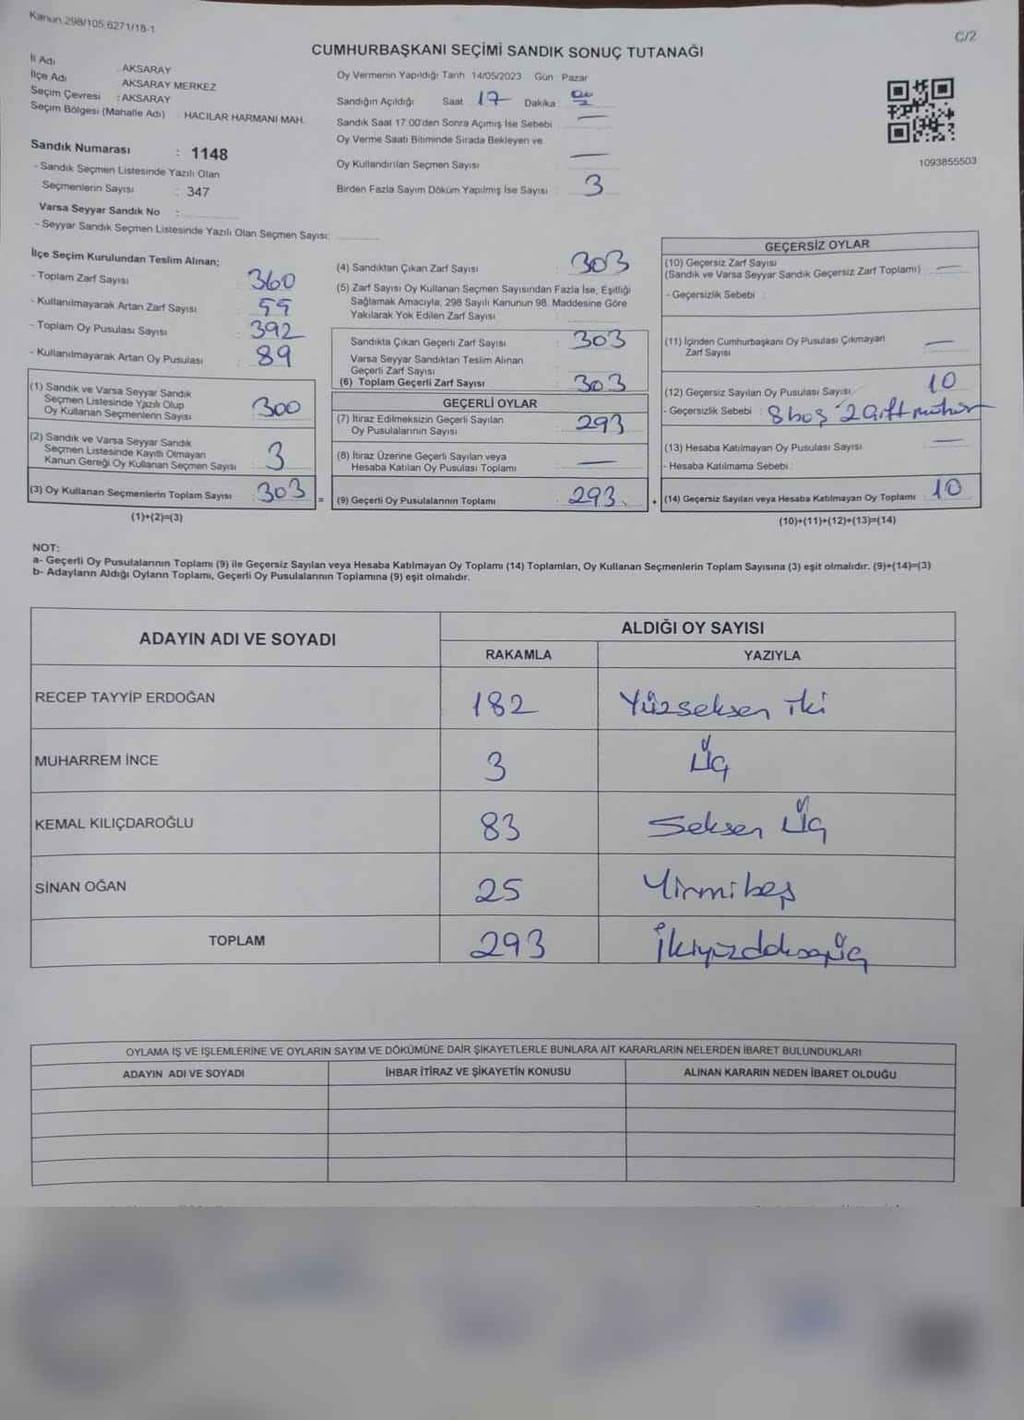 Kanun 298/105,6271/18-1
C/2
CUMHURBAŞKANI SEÇİMİ SANDIK SONUÇ TUTANAĞI
İl Adı : AKSARAY
İlçe Adı : AKSARAY MERKEZ
Seçim Çevresi : AKSARAY
Seçim Bölgesi (Mahalle Adı) : HACILAR HARMANI MAH.
Sandık Numarası : 1148
- Sandık Seçmen Listesinde Yazılı Olan
Seçmenlerin Sayısı : 347
Varsa Seyyar Sandık No :
- Seyyar Sandık Seçmen Listesinde Yazılı Olan Seçmen Sayısı:
Oy Vermenin Yapıldığı Tarih 14/05/2023 Gün Pazar
Sandığın Açıldığı Saat 17 Dakika 00
Sandık Saat 17:00'den Sonra Açımış İse Sebebi —
Oy Verme Saati Bitiminde Sırada Bekleyen ve
Oy Kullandırılan Seçmen Sayısı —
Birden Fazla Sayım Döküm Yapılmış İse Sayısı : 3
1093855503
İlçe Seçim Kurulundan Teslim Alınan;
- Toplam Zarf Sayısı : 360
- Kullanılmayarak Artan Zarf Sayısı :
- Toplam Oy Pusulası Sayısı : 392
- Kullanılmayarak Artan Oy Pusulası : 89
(1) Sandık ve Varsa Seyyar Sandık
Seçmen Listesinde Yazılı Olup
Oy Kullanan Seçmenlerin Sayısı : 300
(2) Sandık ve Varsa Seyyar Sandık
Seçmen Listesinde Kayıtlı Olmayan
Kanun Gereği Oy Kullanan Seçmen Sayısı : 3
(3) Oy Kullanan Seçmenlerin Toplam Sayısı : 303 =
(1)+(2)=(3)
(4) Sandıktan Çıkan Zarf Sayısı : 303
(5) Zarf Sayısı Oy Kullanan Seçmen Sayısından Fazla İse, Eşitliği
Sağlamak Amacıyla, 298 Sayılı Kanunun 98. Maddesine Göre
Yakılarak Yok Edilen Zarf Sayısı
Sandıkta Çıkan Geçerli Zarf Sayısı : 303
Varsa Seyyar Sandıktan Teslim Alınan
Geçerli Zarf Sayısı
(6) Toplam Geçerli Zarf Sayısı : 303
GEÇERLİ OYLAR
(7) İtiraz Edilmeksizin Geçerli Sayılan
Oy Pusulalarının Sayısı : 293
(8) İtiraz Üzerine Geçerli Sayılan veya
Hesaba Katılan Oy Pusulası Toplamı —
(9) Geçerli Oy Pusulalarının Toplamı : 293 +
GEÇERSİZ OYLAR
(10) Geçersiz Zarf Sayısı
(Sandık ve Varsa Seyyar Sandık Geçersiz Zarf Toplamı) : —
- Geçersizlik Sebebi :
(11) İçinden Cumhurbaşkanı Oy Pusulası Çıkmayan
Zarf Sayısı —
(12) Geçersiz Sayılan Oy Pusulası Sayısı : 10
- Geçersizlik Sebebi : 8 boş 2 çift mühür
(13) Hesaba Katılmayan Oy Pusulası Sayısı —
- Hesaba Katılmama Sebebi :
(14) Geçersiz Sayılan veya Hesaba Katılmayan Oy Toplamı : 10
(10)+(11)+(12)+(13)=(14)
NOT:
a- Geçerli Oy Pusulalarının Toplamı (9) ile Geçersiz Sayılan veya Hesaba Katılmayan Oy Toplamı (14) Toplamları, Oy Kullanan Seçmenlerin Toplam Sayısına (3) eşit olmalıdır. (9)+(14)=(3)
b- Adayların Aldığı Oyların Toplamı, Geçerli Oy Pusulalarının Toplamına (9) eşit olmalıdır.
ADAYIN ADI VE SOYADI
ALDIĞI OY SAYISI
RAKAMLA YAZIYLA
RECEP TAYYİP ERDOĞAN 182 Yüzseksen iki
MUHARREM İNCE 3 Üç
KEMAL KILIÇDAROĞLU 83 Seksen Üç
SİNAN OĞAN 25 Yirmibeş
TOPLAM 293
OYLAMA İŞ VE İŞLEMLERİNE VE OYLARIN SAYIM VE DÖKÜMÜNE DAİR ŞİKAYETLERLE BUNLARA AİT KARARLARIN NELERDEN İBARET BULUNDUKLARI
ADAYIN ADI VE SOYADI İHBAR İTİRAZ VE ŞİKAYETİN KONUSU ALINAN KARARIN NEDEN İBARET OLDUĞU